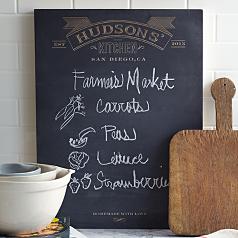 HUDSONS'
EST KITCHEN 2013
SAN DIEGO, CA
Farmer's Market
Carrots
Peas
Lettuce
Strawberries
HOMEMADE WITH LOVE